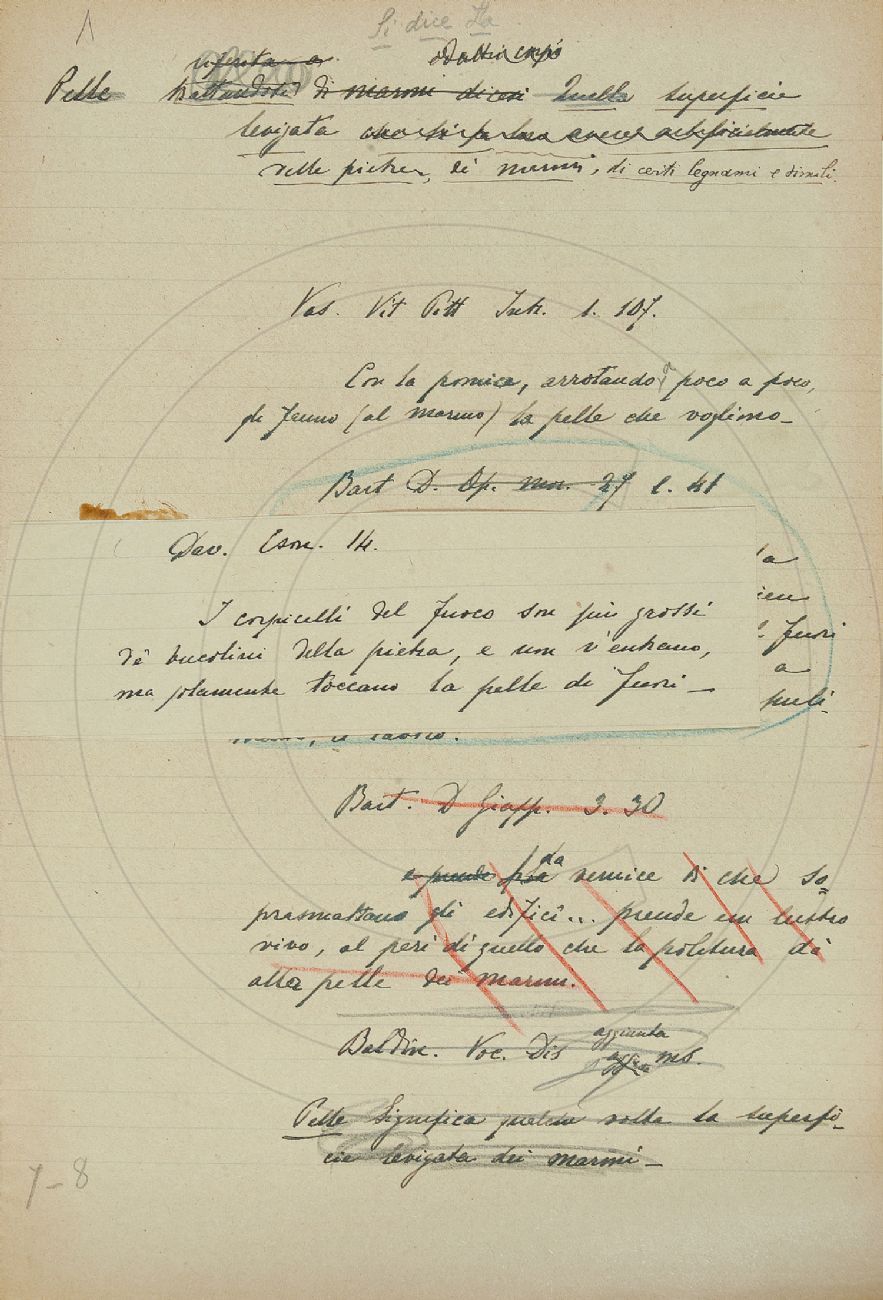 1
Si dice la
riferita a o d'altri corpi
Pelle trattandosi di marmi dicesi Quella superficie
levigata che si fa loro avere artificialmente
delle pietre, de' marmi, di certi legnami e simili.
Vas. Vit Pitt Intr. 1. 107.
Con la pomice, arrotando poco a poco,
gli fanno (al marmo) la pelle che vogliono_
Bart D. Op. mor. 27 1. 41
Dav. Eson. 14.
la
I corpicelli del fuoco son più grossi
de' bucolini della pietra, e non v'entrano,
fuori
a
ma solamente toccano la pelle di fuori_
puli-
, il lavoro.
Bart. D Giapp. 3. 30
e prende più da vernice di che so
prasmattano gli edifici... prende un lustro
vivo, al peri di quello che la politura dà
alla pelle dei marmi.
Baldin. Voc. Dis aggiunta ms.
Pelle Significa qualche volta la superfi-
cie levigata dei marmi_
7-8